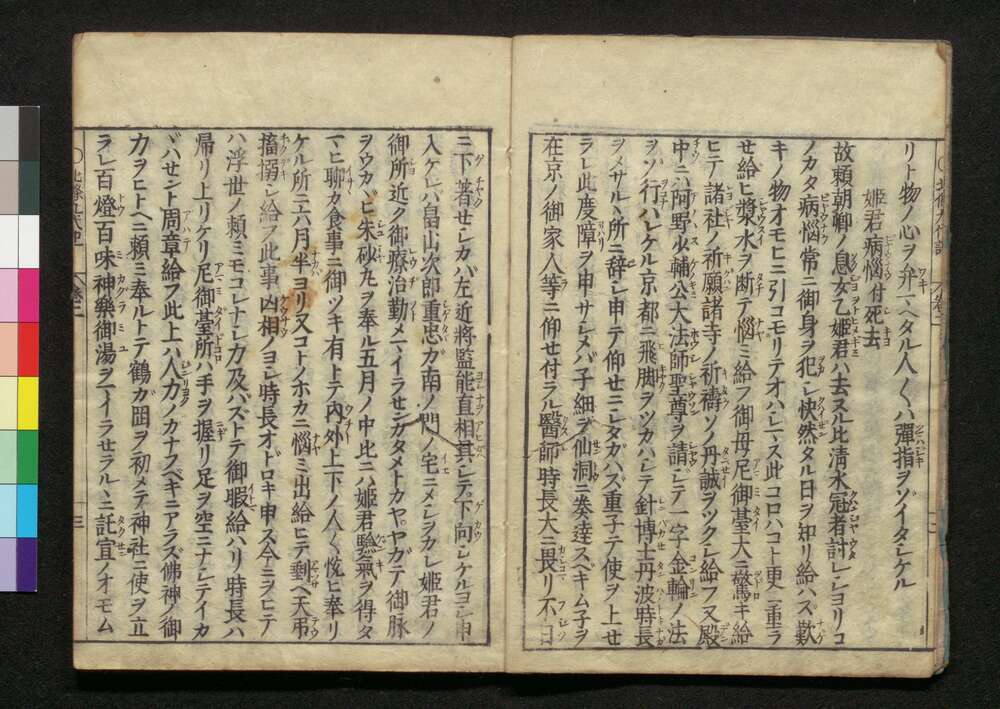 リト物ノ心ヲ弁ヘタル人々ハ彈指ヲゾイタシケル
姫君病惱付死去
故頼朝卿ノ息女乙姫君ハ去ヌル比清水冠者討レシヨリコ
ノカタ病惱常ニ御身ヲ犯シ快然タル日ヲ知リ給ハズ歎
キノ物オモヒニ引コモリテオハシマス此コロハコト更ニ重ラ
せ給ヒ漿水ヲ断テ惱ミ給フ御母尼御臺大ニ驚キ給
ヒテ諸社ノ祈願諸寺ノ祈禱ソノ丹誠ヲツクシ給フ又殿
中ニハ阿野少輔公大法師聖尊ヲ請シテ一字金輪ノ法
ヲソ行ハレケル京都ニ飛脚ヲツカハシテ針博士丹波時長
ヲメサルヽ所ニ辞シ申テ仰せニシタガハズ重子テ使ヲ上せ
ラレ此度障ヲ申サシメバ子細ヲ仙洞ニ奏達スベキム子ヲ
在京ノ御家人等ニ仰せ付ラル醫師時長大ニ畏リ不日
ニ下著せシカバ左近將監能直相具シテ下向シケルヨシ申
入ケレハ畠山次郎重忠カ南ノ門ノ宅ニメシヲカレ姫君ノ
御所近ク御療治勤メマイラせシガタメトカヤヤガテ御脉
ヲウカヾヒ朱砂丸ヲ奉ル五月ノ中比ニハ姫君驗氣ヲ得タ
マヒ聊カ食事ニ御ツキ有トテ内外上下ノ人々悦ヒ奉リ
ケル所ニ六月半ヨリ又コトノホカニ惱ミ出給ヒテ剰ヘ大弔
搐搦シ給フ此事凶相ノヨシ時長オドロキ申ス今ニヲヒテ
ハ浮世ノ頼ミモコレナシ力及バズトテ御暇給ハリ時長ハ
帰リ上リケリ尼御臺所ハ手ヲ握リ足ヲ空ニナシテイカ
ヾハせント周章給フ此上ハ人力ノカナフベキニアラズ佛神ノ御
力ヲヒトヘニ頼ミ奉ルトテ鶴カ岡ヲ初メテ神社ニ使ヲ立
ラレ百燈百味神樂御湯ヲマイラせラルヽニ託宣ノオモム